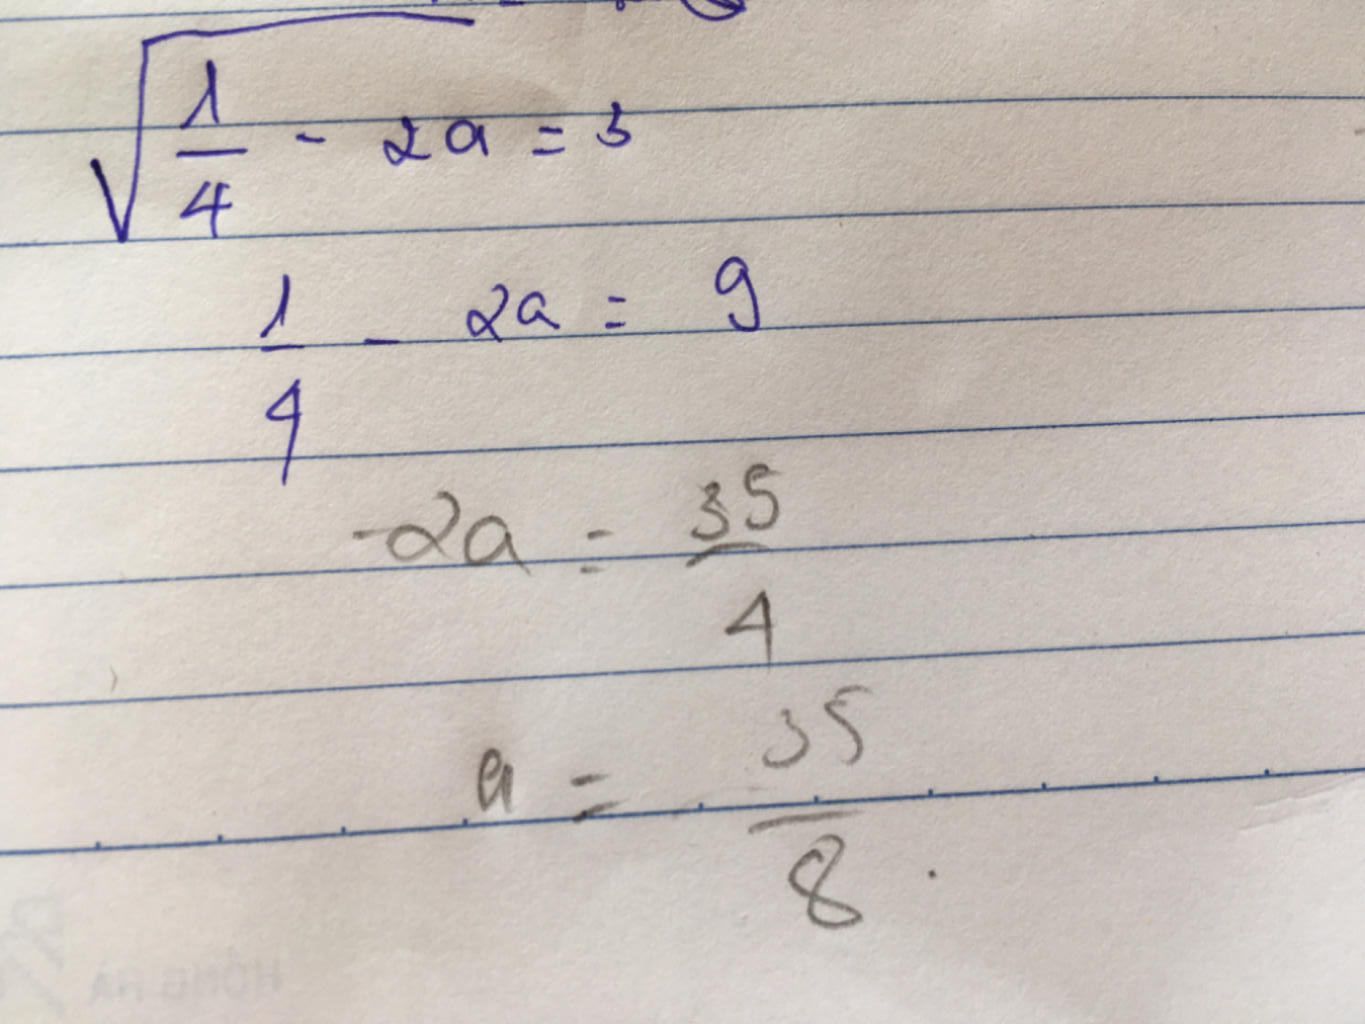 √(1/4 - 2a) = 3
1/4 - 2a = 9
-2a = 35/4
a = 35/8.